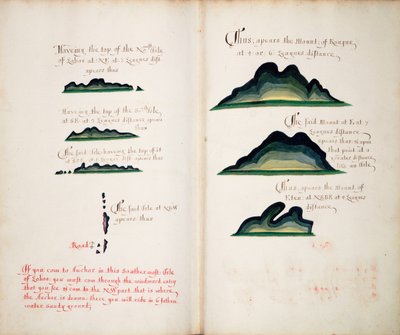 Haveing the top of the No:most Isle
of Lobos at: NE at: 5 Leagues dist:
apears thus
Haveing the top of the So:most Isle
at SE at: 5 Leagues distance
thus
The said Isle haveing the top of it
at
The said Isle at NbW
apears thus
Road
If you com to Anchor in this Southermost Isle
of Lobos: you must com through the windward entry
that you see is com to the NW part that is where
the Anchor is drawn: there you will ride in 6 fathm
water sandy ground;
Thus, apears the Mount, of
at 4 or 6 Leagues distance
The said Mount at E at 7
Leagues distance
apears thus
that point at a
greater distance
like an Isle
Thus, apears the Mount of
Eten: at NEbE at 4 Leagues
distance